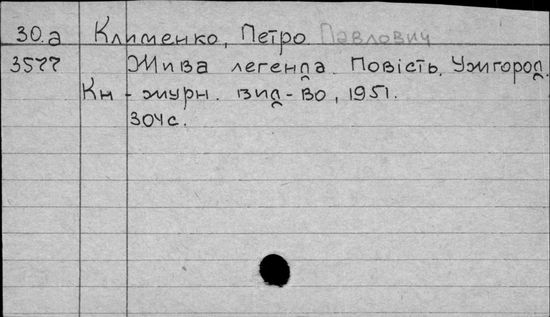 30.а Клименко, Петро Павлович
3577 Жива легенда. Повість. Ужгород.
Кн - журн. вид-во, 1951.
304с.